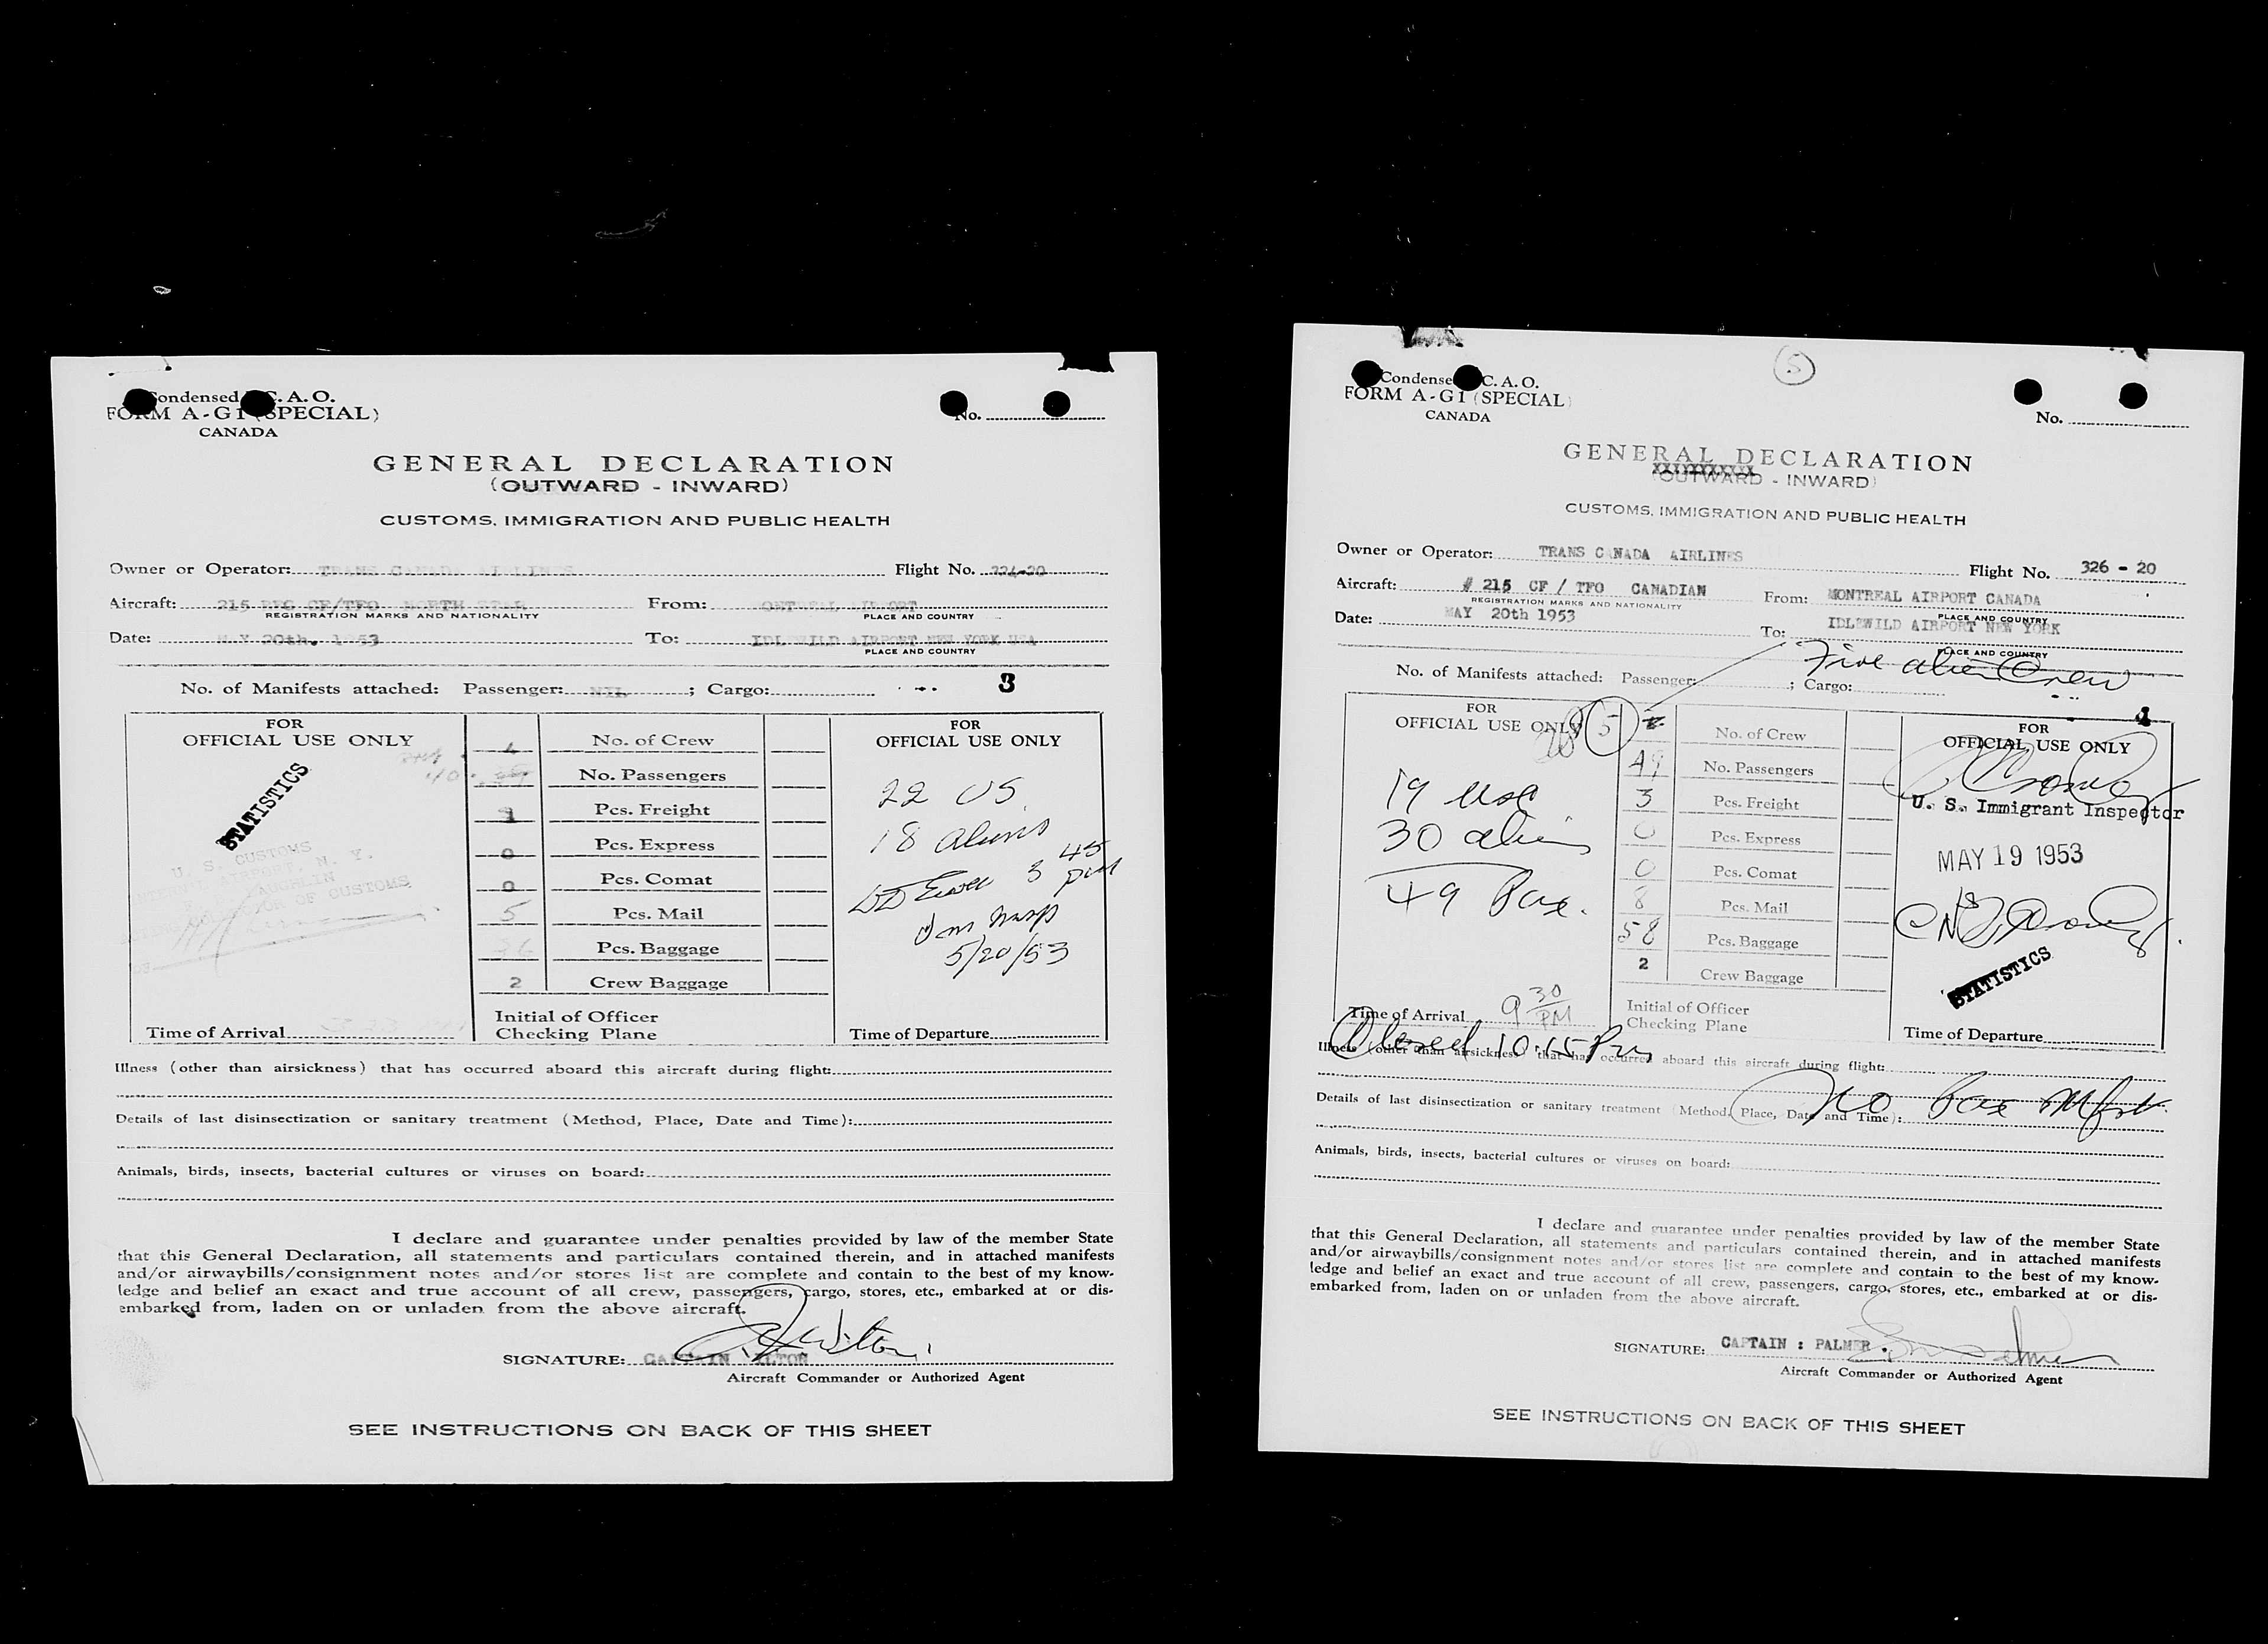 Condensed I.C.A.O.
FORM A-G1 (SPECIAL)
CANADA
No.
GENERAL DECLARATION
(OUTWARD - INWARD)
CUSTOMS, IMMIGRATION AND PUBLIC HEALTH
Owner or Operator: TRANS CANADA AIRLINES Flight No. 324-20
Aircraft: 215 REG CF/TFO NORTH STAR From: MONTREAL AIRPORT
REGISTRATION MARKS AND NATIONALITY PLACE AND COUNTRY
Date: MAY 20th. 1953 To: IDLEWILD AIRPORT NEW YORK USA
PLACE AND COUNTRY
No. of Manifests attached: Passenger: NIL ; Cargo: 3
FOR
OFFICIAL USE ONLY
STATISTICS
U. S. CUSTOMS
N. Y.
OF CUSTOMS
Time of Arrival
No. of Crew
40 No. Passengers
Pcs. Freight
0 Pcs. Express
0 Pcs. Comat
5 Pcs. Mail
36 Pcs. Baggage
2 Crew Baggage
Initial of Officer
Checking Plane
FOR
OFFICIAL USE ONLY
22 US
18 aliens
3 45 PM
5/20/53
Time of Departure
Illness (other than airsickness) that has occurred aboard this aircraft during flight:
Details of last disinsectization or sanitary treatment (Method, Place, Date and Time):
Animals, birds, insects, bacterial cultures or viruses on board:
I declare and guarantee under penalties provided by law of the member State
that this General Declaration, all statements and particulars contained therein, and in attached manifests
and/or airwaybills/consignment notes and/or stores list are complete and contain to the best of my know-
ledge and belief an exact and true account of all crew, passengers, cargo, stores, etc., embarked at or dis-
embarked from, laden on or unladen from the above aircraft.
SIGNATURE: CAPTAIN WILTON
Aircraft Commander or Authorized Agent
SEE INSTRUCTIONS ON BACK OF THIS SHEET
5
Condensed I.C.A.O.
FORM A-G1 (SPECIAL)
CANADA
No.
GENERAL DECLARATION
XXXXXXXXXXX
(OUTWARD - INWARD)
CUSTOMS, IMMIGRATION AND PUBLIC HEALTH
Owner or Operator: TRANS CANADA AIRLINES Flight No. 326 - 20
Aircraft: # 215 CF / TFO CANADIAN From: MONTREAL AIRPORT CANADA
REGISTRATION MARKS AND NATIONALITY PLACE AND COUNTRY
Date: MAY 20th 1953 To: IDLEWILD AIRPORT NEW YORK
PLACE AND COUNTRY
Five alien Crew
No. of Manifests attached: Passenger: ; Cargo:
1
FOR
OFFICIAL USE ONLY
19 USC
30 alien
49 Pax.
Time of Arrival 9 30 PM
Cleared 10:15 Pm
5 No. of Crew
49 No. Passengers
3 Pcs. Freight
0 Pcs. Express
0 Pcs. Comat
8 Pcs. Mail
58 Pcs. Baggage
2 Crew Baggage
Initial of Officer
Checking Plane
FOR
OFFICIAL USE ONLY
U. S. Immigrant Inspector
MAY 19 1953
STATISTICS
Time of Departure
Illness (other than airsickness) that has occurred aboard this aircraft during flight:
Details of last disinsectization or sanitary treatment (Method, Place, Date and Time):
No Pax Mfst
Animals, birds, insects, bacterial cultures or viruses on board:
I declare and guarantee under penalties provided by law of the member State
that this General Declaration, all statements and particulars contained therein, and in attached manifests
and/or airwaybills/consignment notes and/or stores list are complete and contain to the best of my know-
ledge and belief an exact and true account of all crew, passengers, cargo, stores, etc., embarked at or dis-
embarked from, laden on or unladen from the above aircraft.
SIGNATURE: CAPTAIN : PALMER .
Aircraft Commander or Authorized Agent
SEE INSTRUCTIONS ON BACK OF THIS SHEET